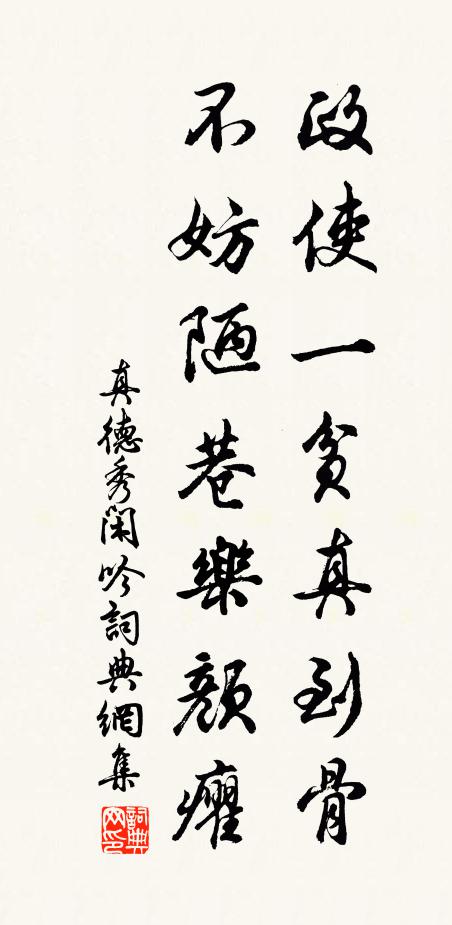 政使一貧真到骨
不妨陋巷樂顏癯
真德秀閑吟詞典網集
詞典
网印